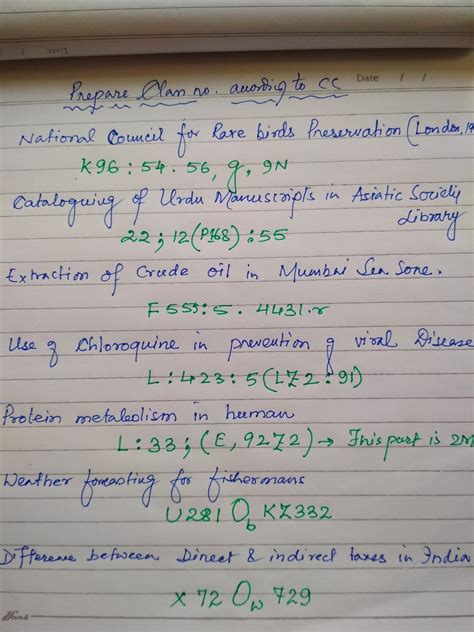 Date / /
Prepare Class no. according to CC
National Council for Rare birds Preservation (London, 19
K96 : 54 . 56, g, 9N
Cataloguing of Urdu Manuscripts in Asiatic Society
Library
22 ; 12 (P168) : 55
Extraction of Crude oil in Mumbai Sea Sone.
F 555 : 5 . 4431 . r
Use of Chloroquine in prevention of viral Disease
L : 423 : 5 (LZ2 : 91)
Protein metabolism in human
L : 33 ; (E, 9272) → This part is 2n
Weather forecasting for fishermans
U281 0b KZ332
Difference between Direct & indirect taxes in India
X 72 0w 729